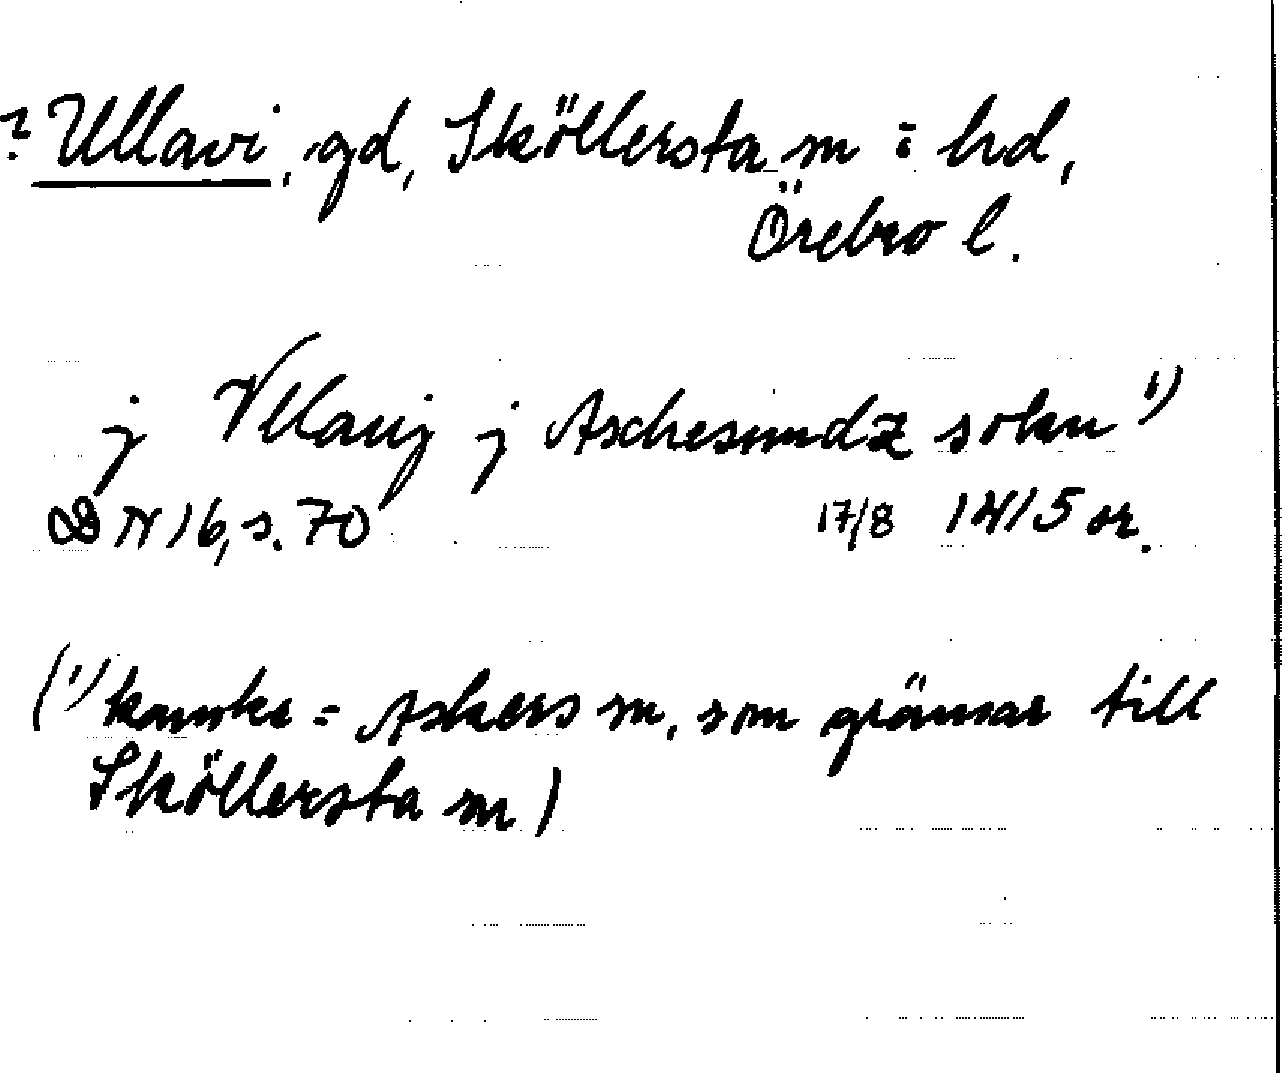 ? Ullavi, gd, Sköllersta sn = hd,
Örebro l.
j Vllauij j Aschesundz sokn ¹)
DN 16, s. 70 17/8 1415 or.
(¹) kanske = Askers sn, som gränsar till
Sköllersta sn)